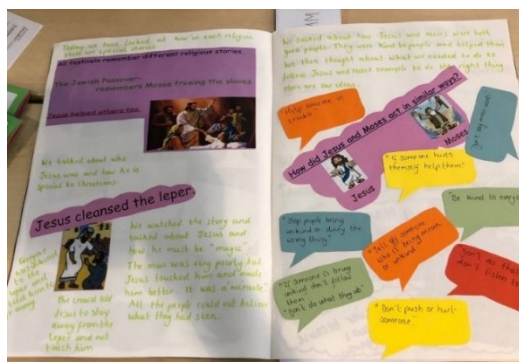 Today we have looked at how in each religion
there are special stories
All festivals remember different religious stories.
The Jewish Passover-
remembers Moses freeing the slaves
Jesus helped others too.
We talked about who
Jesus was and how he is
special to Christians.
Jesus cleansed the leper.
We watched the story and
talked about Jesus and
how he must be "magic".
The man was very poorly but
Jesus touched him and made
him better. It was a miracle.
All the people could not believe
what they had seen.
The crowd told
Jesus to stay
away from the
leper and not
touch him
We talked about how Jesus and Moses were both
good people. They were kind to people and helped them
We then thought about what we needed to do to
follow Jesus and Moses example to do the right thing.
Here are our ideas.
"Help someone in
trouble"
How did Jesus and Moses act in similar ways?
Moses
Jesus
"If someone hurts
themself help them"
"Stop people being
unkind or doing the
wrong thing"
"Tell off someone
who is being mean
or unkind"
"Be kind to
"If someone is being
unkind don't follow
them
"don't do what they do"
"Don't push or hurt
someone"